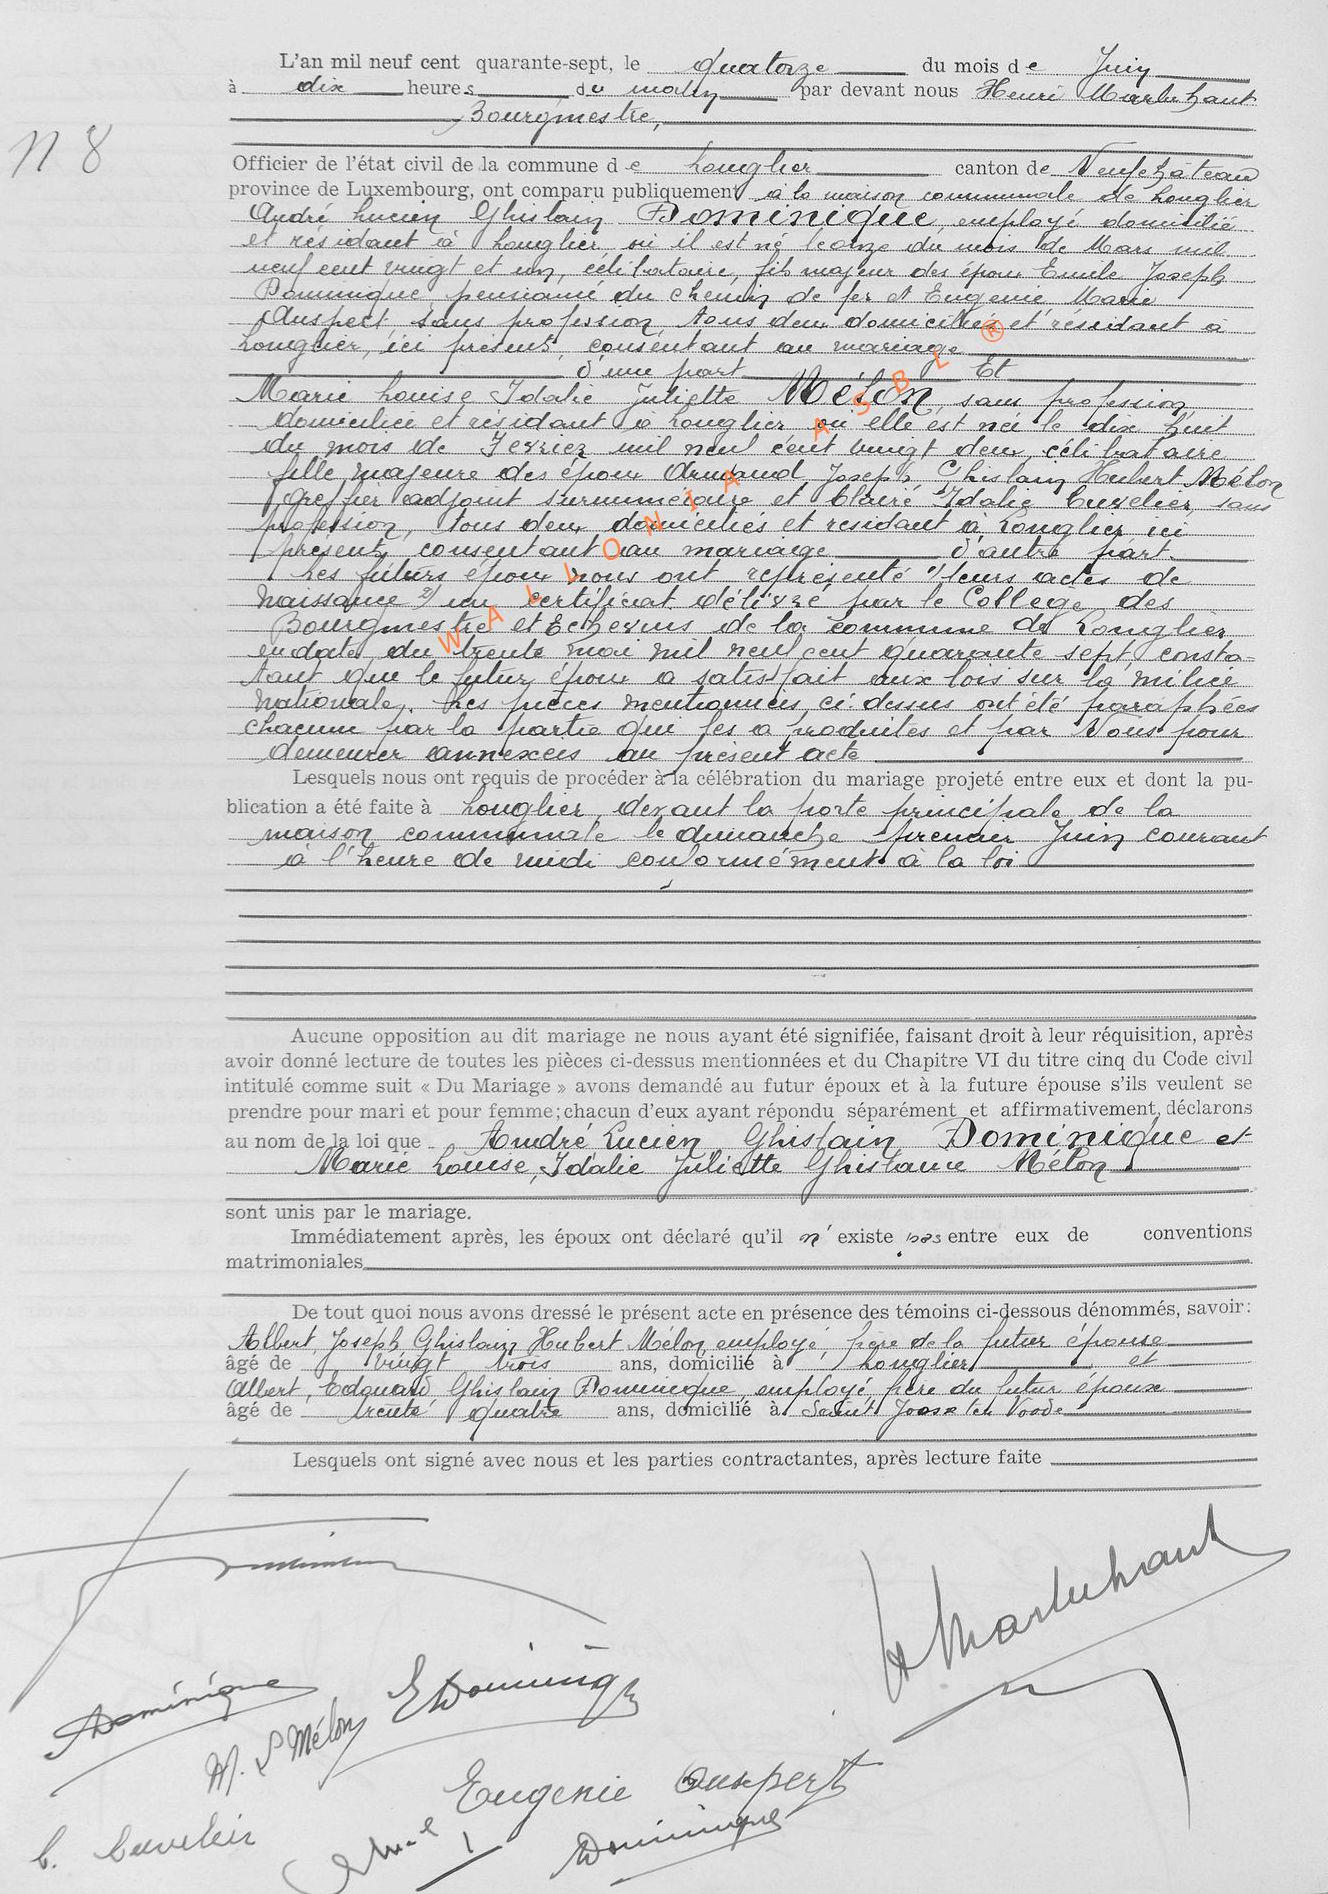 L'an mil neuf cent quarante-sept, le quatorze du mois de Juin
à dix heures du matin par devant nous Henri Marluhant
Bourgmestre,
N 8
Officier de l'état civil de la commune de Longlier canton de Neufchâteau
province de Luxembourg, ont comparu publiquement à la maison communale de Longlier
André Lucien Ghislain Dominique, employé domicilié
et résidant à Longlier où il est né le onze du mois de Mars mil
neuf cent vingt et un, célibataire, fils majeur des époux Emile Joseph
Dominique, pensionné du chemin de fer et Eugénie Marie
sans profession, tous deux domiciliés et résidant à
Longlier, ici présents, consentant au mariage
d'une part Et
Marie Louise Idalie Juliette Mélon, sans profession,
domiciliée et résidant à Longlier où elle est née le dix huit
du mois de Fevrier mil neuf cent vingt deux, célibataire
fille majeure des époux Armand Joseph Ghislain Hubert Mélon
greffier adjoint surnuméraire et Claire Idalie Cuvelier, sans
profession, tous deux domiciliés et residant à Longlier, ici
présents, consentant au mariage d'autre part.
Les futurs époux nous ont représenté 1) leurs actes de
naissance 2) un certificat délivré par le Collège des
Bourgmestre et Echevins de la commune de Longlier
en date du trente mai mil neuf cent quarante sept consta-
tant que le futur époux a satisfait aux lois sur la milice
nationale. Les pièces mentionnées ci-dessus ont été paraphées
chacune par la partie qui les a produites et par Nous pour
demeurer annexées au présent acte
Lesquels nous ont requis de procéder à la célébration du mariage projeté entre eux et dont la pu-
blication a été faite à Longlier, devant la porte principale de la
maison communale le dimanche premier Juin courant
à l'heure de midi conformément à la loi
Aucune opposition au dit mariage ne nous ayant été signifiée, faisant droit à leur réquisition, après
avoir donné lecture de toutes les pièces ci-dessus mentionnées et du Chapitre VI du titre cinq du Code civil
intitulé comme suit « Du Mariage » avons demandé au futur époux et à la future épouse s'ils veulent se
prendre pour mari et pour femme; chacun d'eux ayant répondu séparément et affirmativement, déclarons
au nom de la loi que André Lucien Ghislain Dominique et
Marie Louise, Idalie Juliette Ghislaine Mélon
sont unis par le mariage.
Immédiatement après, les époux ont déclaré qu'il n'existe pas entre eux de conventions
matrimoniales
De tout quoi nous avons dressé le présent acte en présence des témoins ci-dessous dénommés, savoir:
Albert, Joseph Ghislain Hubert Mélon, employé, frère de la futur épouse
âgé de vingt trois ans, domicilié à Longlier et
Albert, Edouard Ghislain Dominique, employé, frère du futur époux
âgé de trente quatre ans, domicilié à Saint Josse ten Noode
Lesquels ont signé avec nous et les parties contractantes, après lecture faite
H Marluhant
Dominique
E Dominique
M. L Mélon
Eugenie
C. Cuvelier
Dominique
WALLONIA ASBL ®